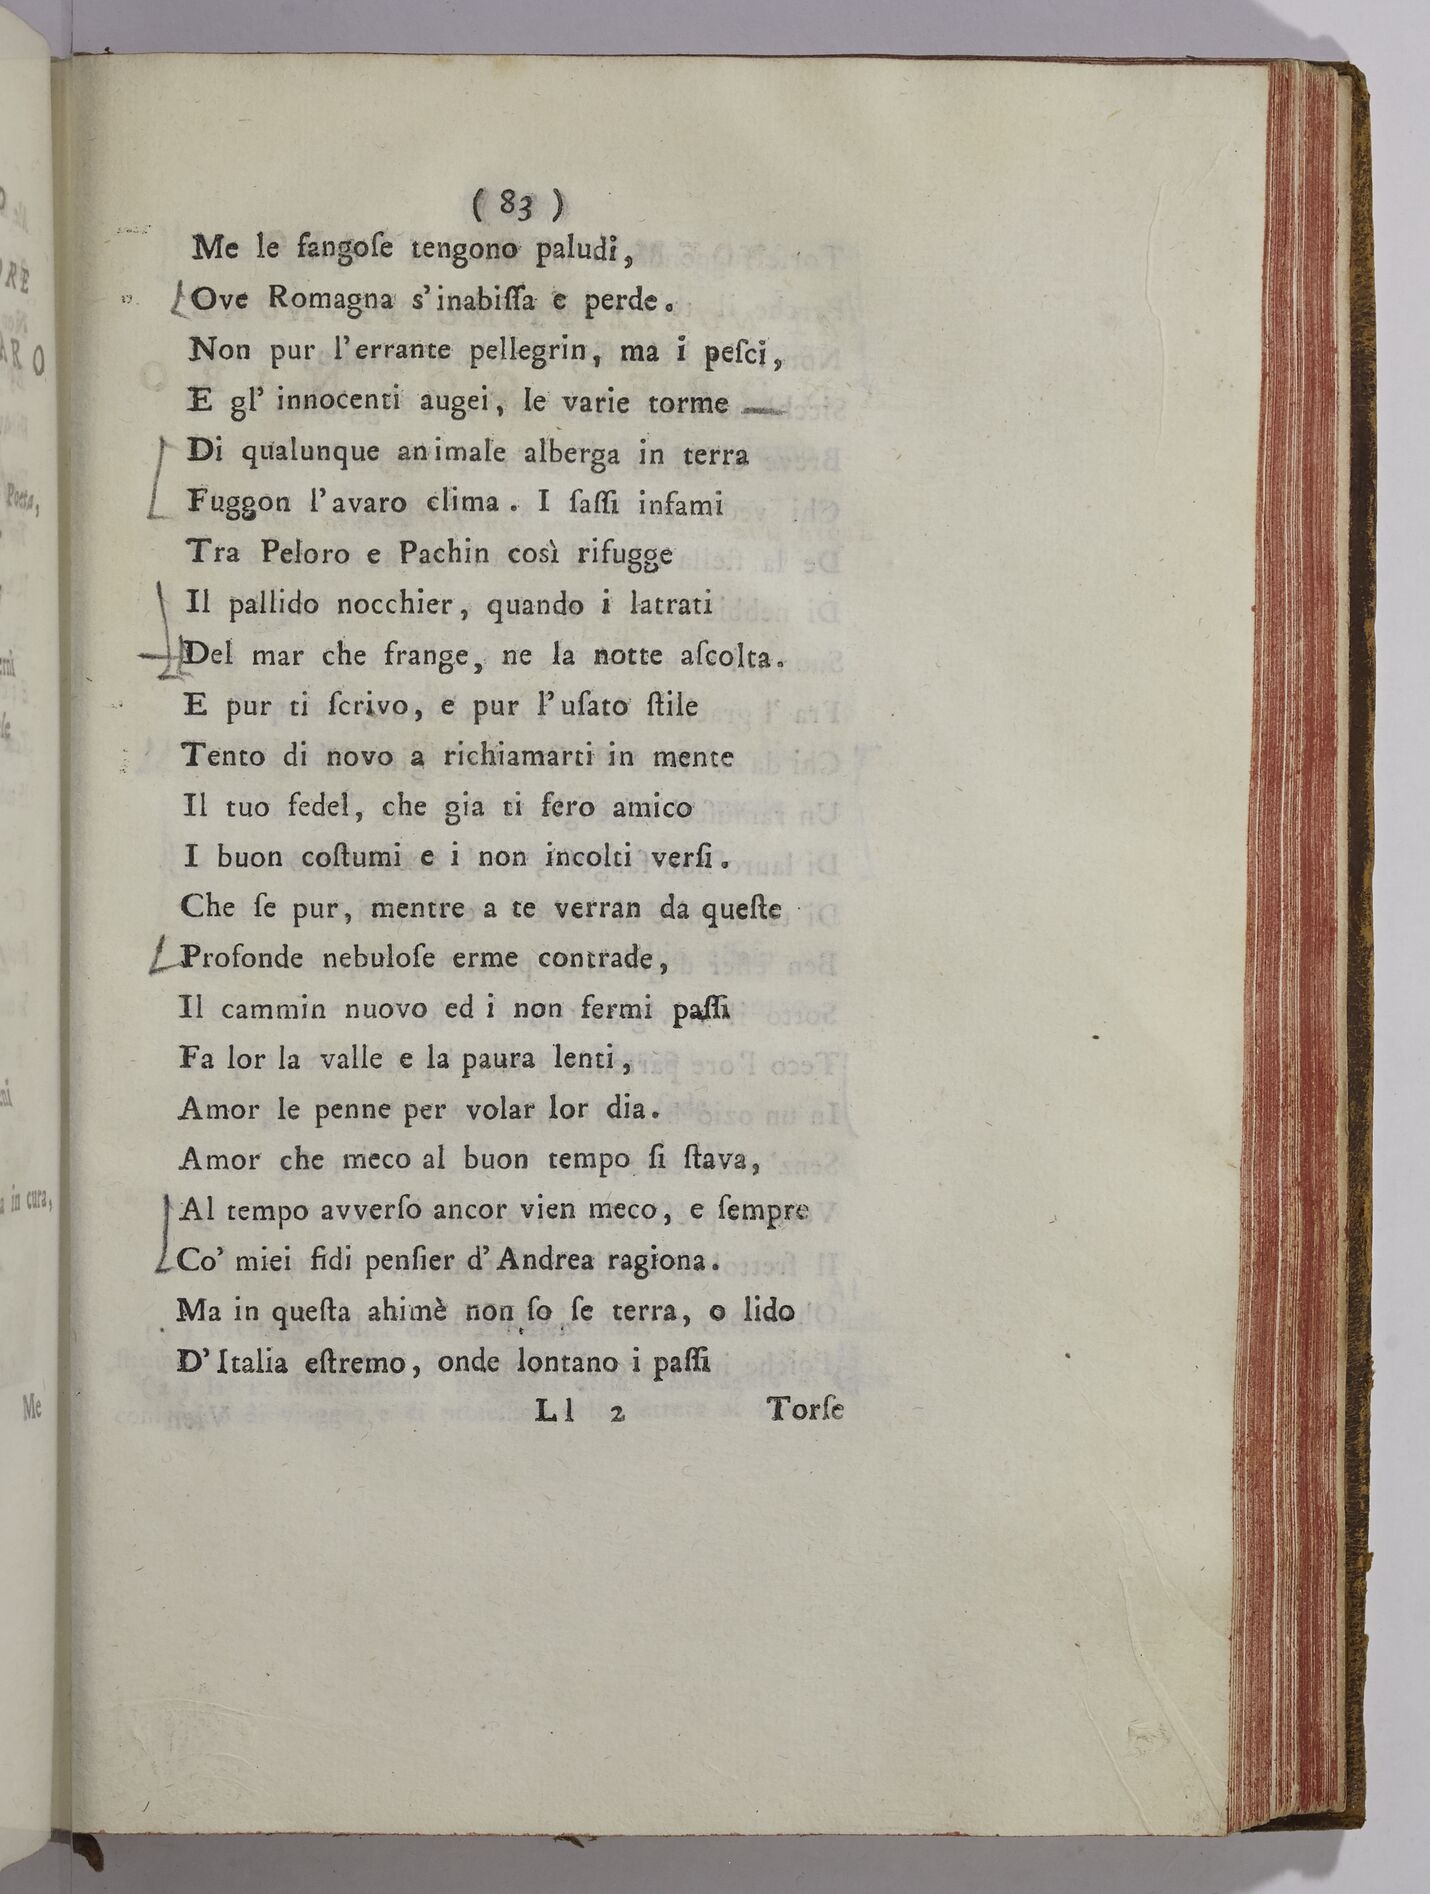 ( 83 )
Me le fangoſe tengono paludi,
Ove Romagna s'inabiſſa e perde.
Non pur l'errante pellegrin, ma i peſci,
E gl' innocenti augei, le varie torme
Di qualunque animale alberga in terra
Fuggon l'avaro clima. I ſaſſi infami
Tra Peloro e Pachin così rifugge
Il pallido nocchier, quando i latrati
Del mar che frange, ne la notte aſcolta.
E pur ti ſcrivo, e pur l'uſato ſtile
Tento di novo a richiamarti in mente
Il tuo fedel, che gia ti fero amico
I buon coſtumi e i non incolti verſi.
Che ſe pur, mentre a te verran da queſte
Profonde nebuloſe erme contrade,
Il cammin nuovo ed i non fermi paſſi
Fa lor la valle e la paura lenti,
Amor le penne per volar lor dia.
Amor che meco al buon tempo ſi ſtava,
Al tempo avverſo ancor vien meco, e ſempre
Co' miei fidi penſier d'Andrea ragiona.
Ma in queſta ahimè non ſo ſe terra, o lido
D'Italia eſtremo, onde lontano i paſſi
Ll 2 Torſe
RE
ARO
Poeta,
in cura,
Me